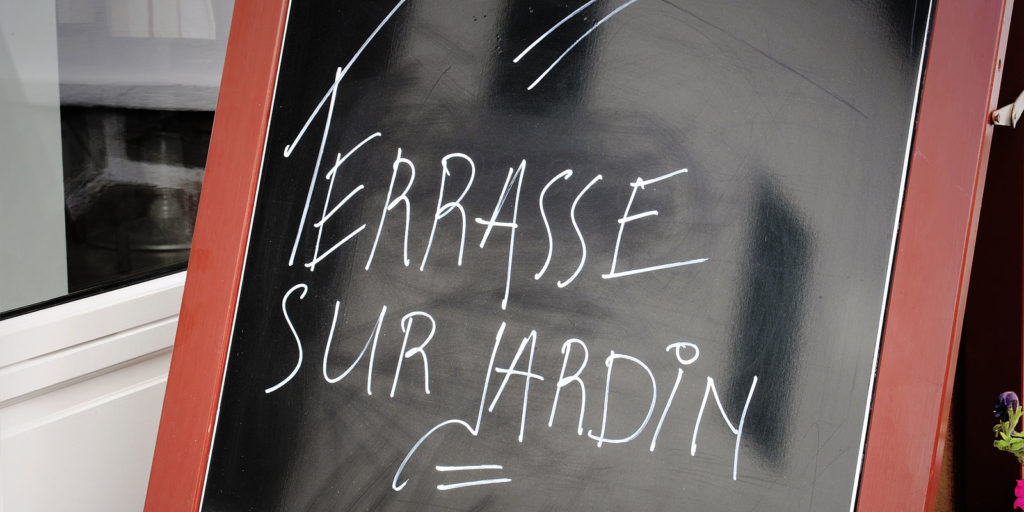 TERRASSE
SUR JARDIN